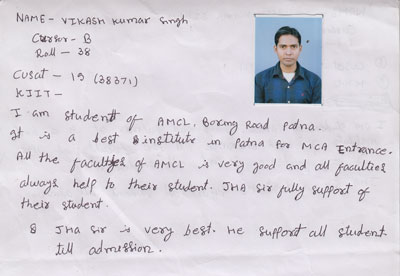 NAME - VIKASH Kumar Singh
Cursor - B
Roll - 38
CUSAT - 19 (38371)
KIIT -
I am student of AMCL. Boring Road Patna.
It is a best institute in Patna for MCA Entrance.
All the faculties of AMCL is very good and all faculties
always help to their student. JHA sir fully support of
their student.
& JHA sir is very best. He support all student
till admission.